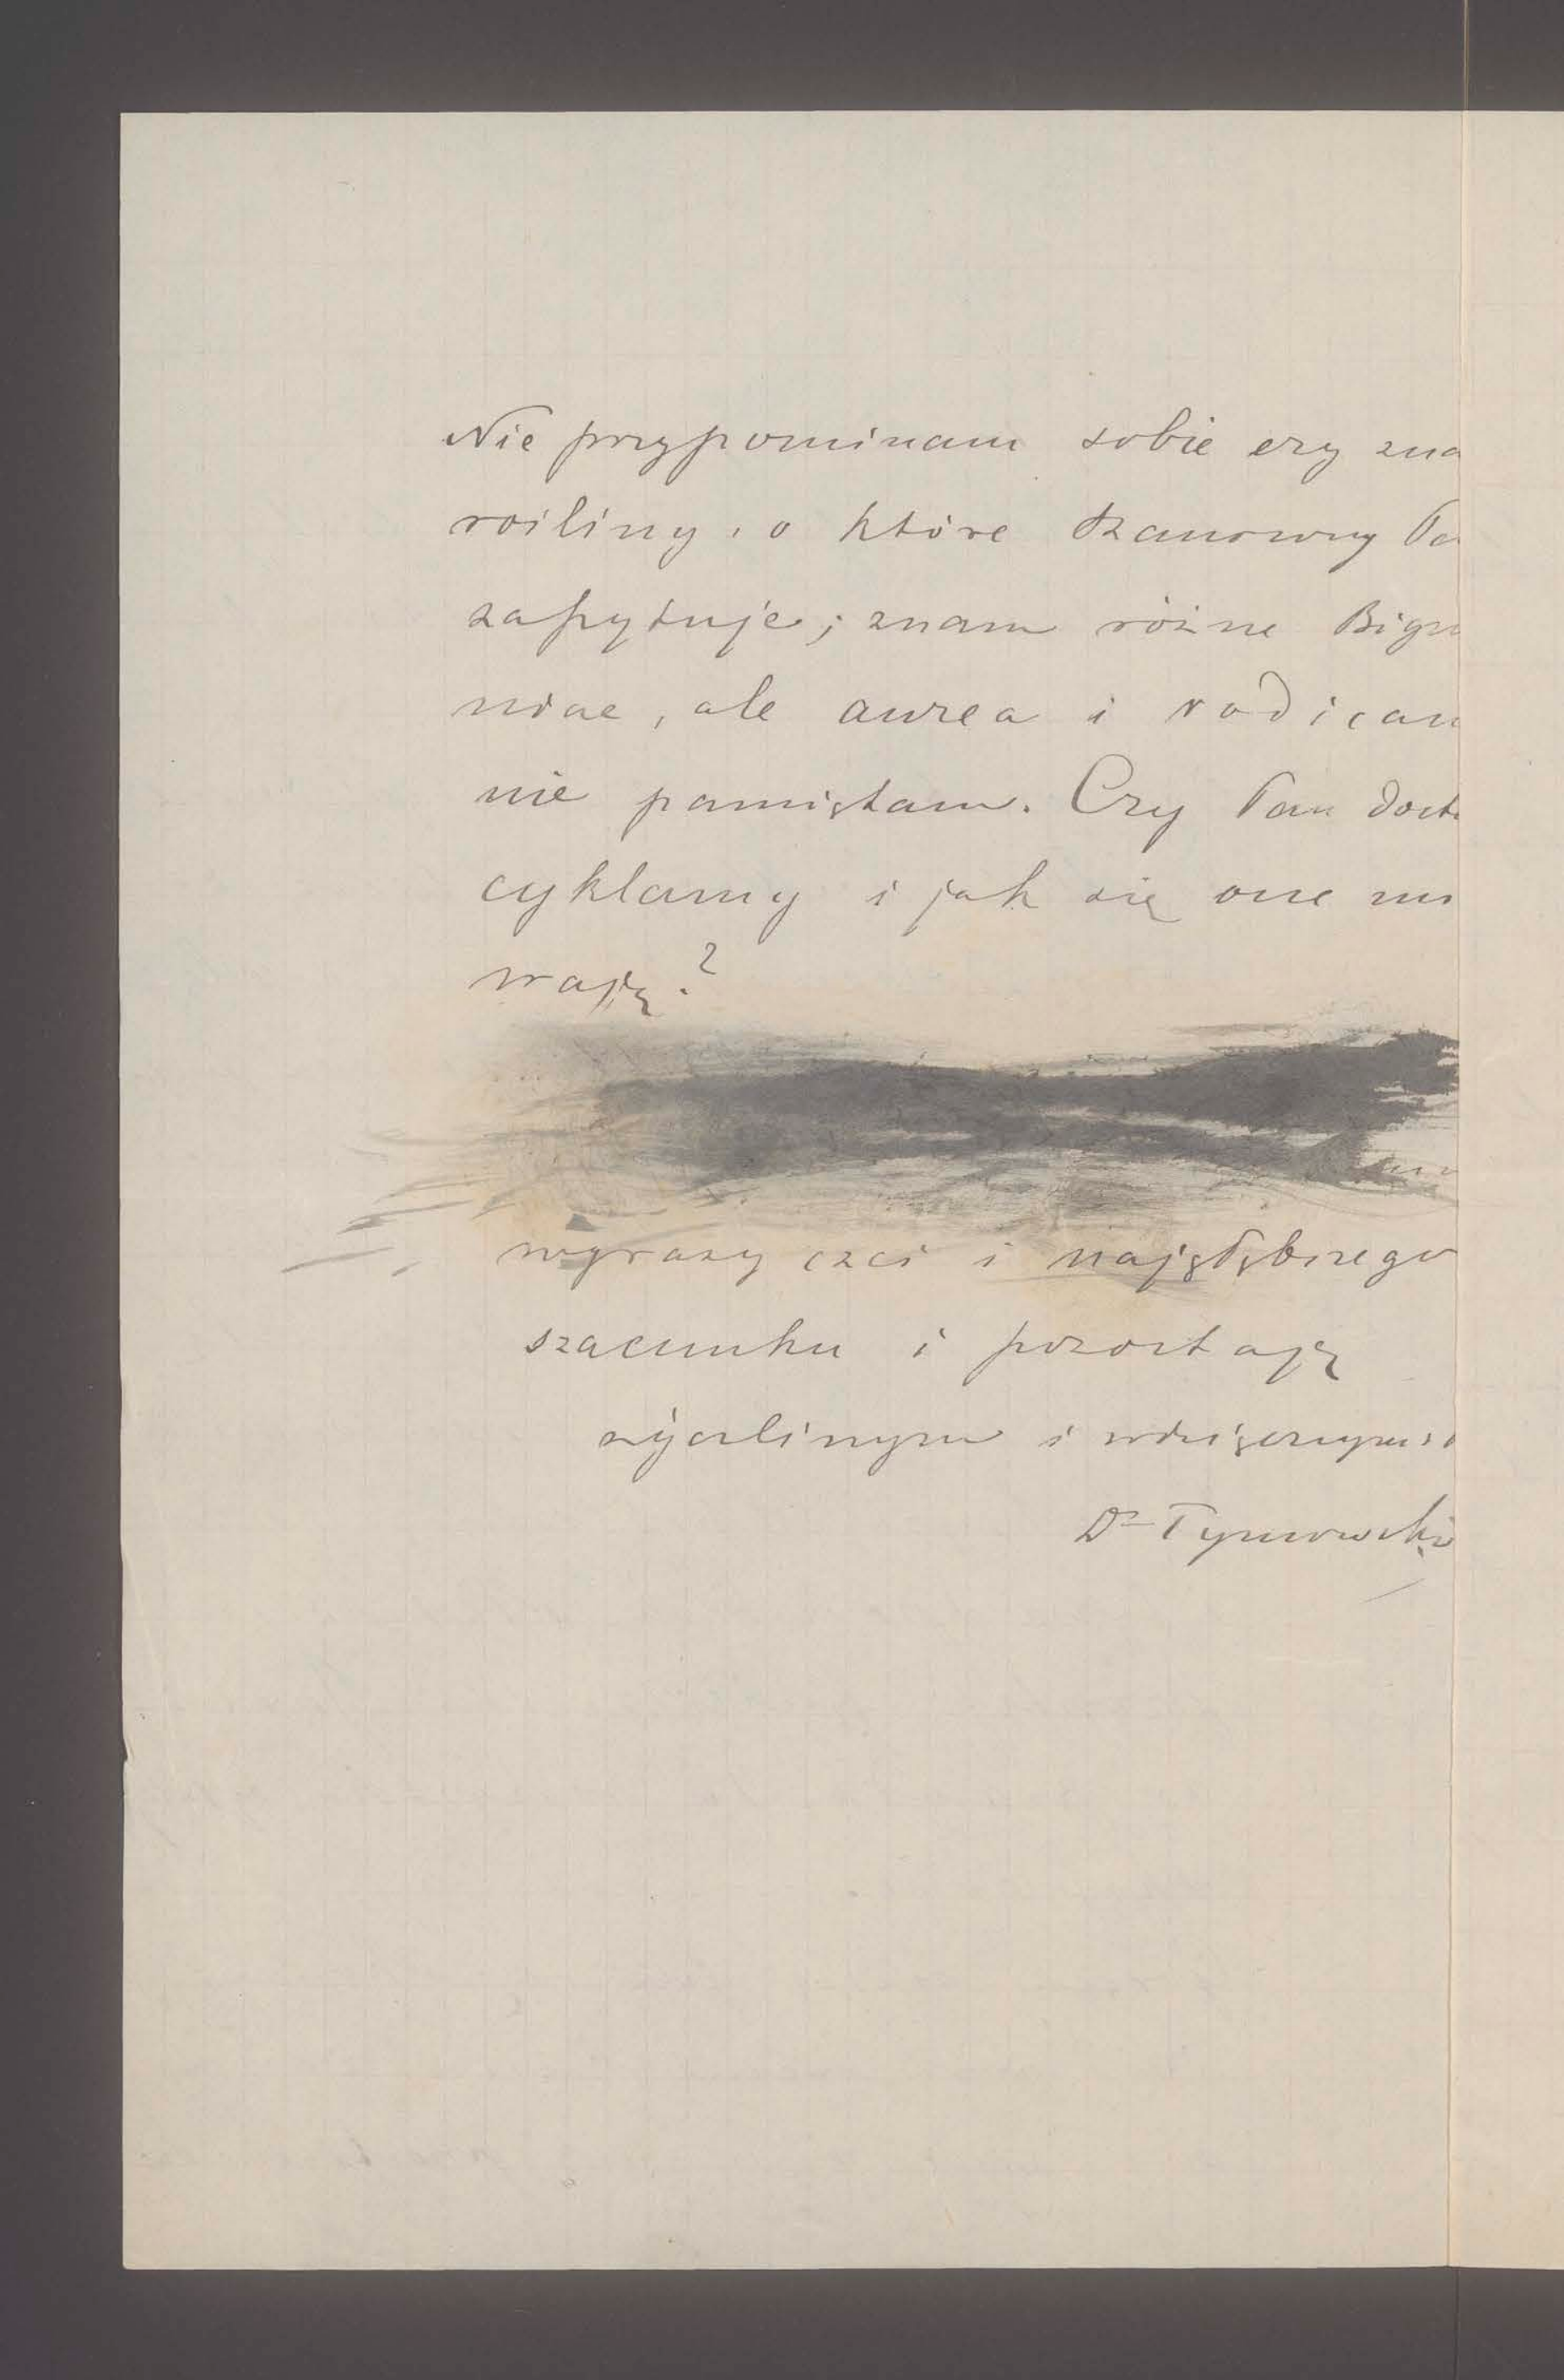 Nie przypominam sobie czy zna
rośliny, o które Szanowny Pa
zapytuje; znam różne Bign
niae, ale aurea i radican
nie pamiętam. Czy Pan dost
cyklamy i jak się one
wają?
wyrazy czci i najgłębszego
szacunku i pozostaję
życzliwym i wdzięcznym
Dr Tymowski